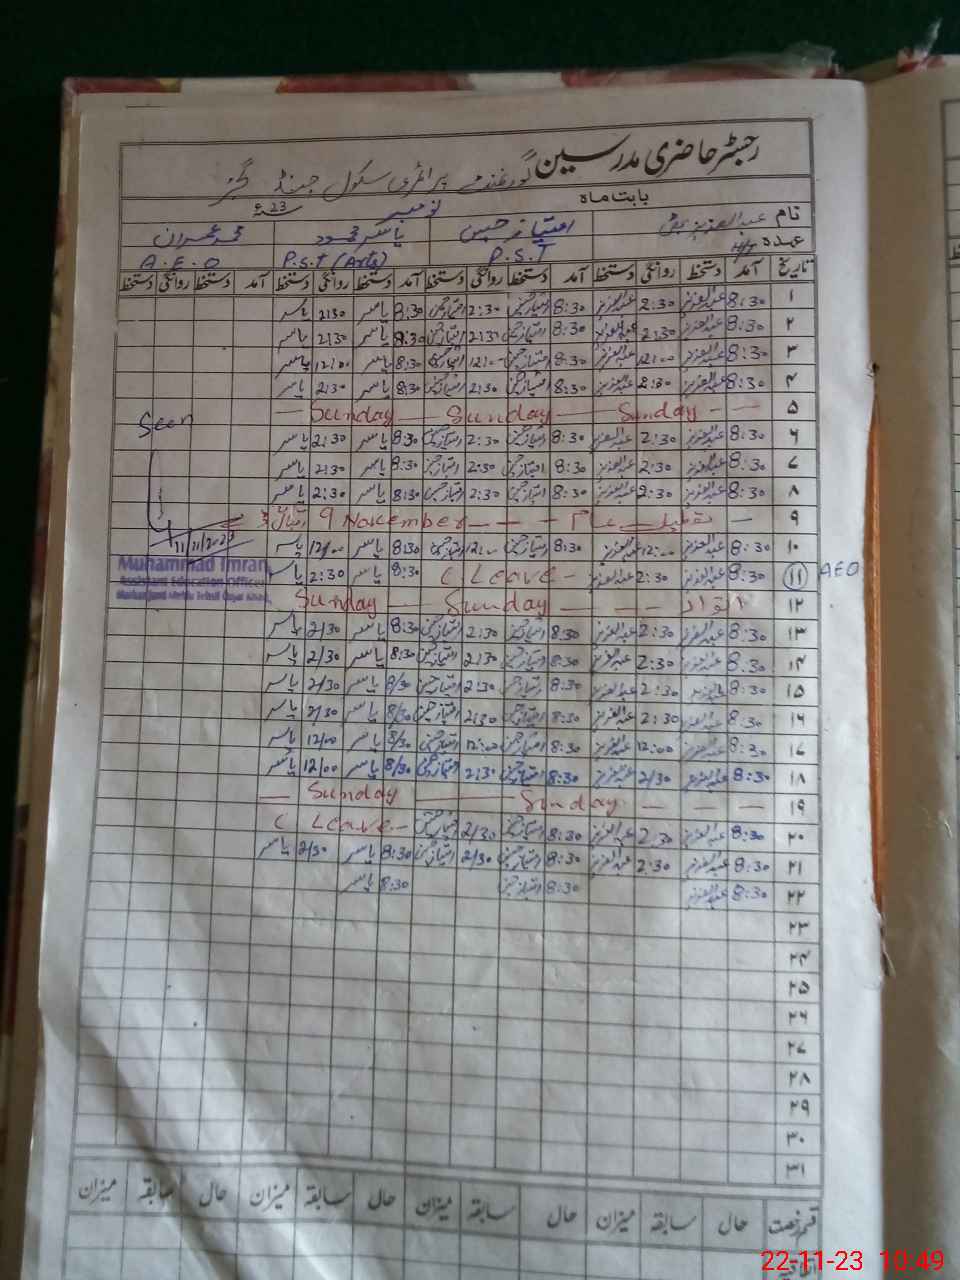 رجسٹر حاضری مدرسین گورنمنٹ پرائمری سکول جنڈ گجر
بابت ماہ نومبر 23ء
نام عبدالعزیز امتیاز حسین یاسر محمود محمد عمران
عہدہ P.S.T P.S.T (Arts) A.E.O
تاریخ آمد دستخط روانگی دستخط آمد دستخط روانگی دستخط آمد دستخط روانگی دستخط آمد دستخط روانگی دستخط
۱ 8:30 عبدالعزیز 2:30 عبدالعزیز 8:30 امتیاز حسین 2:30 امتیاز حسین 8:30 یاسر 2:30 یاسر
۲ 8:30 عبدالعزیز 2:30 عبدالعزیز 8:30 امتیاز حسین 2:30 امتیاز حسین 8:30 یاسر 2:30 یاسر
۳ 8:30 عبدالعزیز 12:00 عبدالعزیز 8:30 امتیاز حسین 12:00 امتیاز حسین 8:30 یاسر 12:00 یاسر
۴ 8:30 عبدالعزیز 2:30 عبدالعزیز 8:30 امتیاز حسین 2:30 امتیاز حسین 8:30 یاسر 2:30 یاسر
۵ — — Sunday — Sunday — Sunday —
Seen
۶ 8:30 عبدالعزیز 2:30 عبدالعزیز 8:30 امتیاز حسین 2:30 امتیاز حسین 8:30 یاسر 2:30 یاسر
۷ 8:30 عبدالعزیز 2:30 عبدالعزیز 8:30 امتیاز حسین 2:30 امتیاز حسین 8:30 یاسر 2:30 یاسر
۸ 8:30 عبدالعزیز 2:30 عبدالعزیز 8:30 امتیاز حسین 2:30 امتیاز حسین 8:30 یاسر 2:30 یاسر
۹ — تعطیل عام — — — 9 November اقبال
۱۰ 8:30 عبدالعزیز 12:00 عبدالعزیز 8:30 امتیاز حسین 12:00 امتیاز حسین 8:30 یاسر 12/00 یاسر
11/11/2023
Muhammad Imran
Assistant Education Officer
AEO ۱۱ 8:30 عبدالعزیز 2:30 عبدالعزیز C Leave - 8:30 یاسر 2:30 یاسر
۱۲ اتوار — — — Sunday — Sunday
۱۳ 8:30 عبدالعزیز 2:30 عبدالعزیز 8:30 امتیاز حسین 2:30 امتیاز حسین 8:30 یاسر 2/30 یاسر
۱۴ 8:30 عبدالعزیز 2:30 عبدالعزیز 8:30 امتیاز حسین 2:30 امتیاز حسین 8:30 یاسر 2/30 یاسر
۱۵ 8:30 عبدالعزیز 2:30 عبدالعزیز 8:30 امتیاز حسین 2:30 امتیاز حسین 8/30 یاسر 2/30 یاسر
۱۶ 8:30 عبدالعزیز 2:30 عبدالعزیز 8:30 امتیاز حسین 2:30 امتیاز حسین 8/30 یاسر 2/30 یاسر
۱۷ 8:30 عبدالعزیز 12:00 عبدالعزیز 8:30 امتیاز حسین 12:00 امتیاز حسین 8/30 یاسر 12/00 یاسر
۱۸ 8:30 عبدالعزیز 2/30 عبدالعزیز 8:30 امتیاز حسین 2:30 امتیاز حسین 8/30 یاسر 12/00 یاسر
۱۹ — — — Sunday — Sunday —
۲۰ 8:30 عبدالعزیز 2:30 عبدالعزیز 8:30 امتیاز حسین 2/30 امتیاز حسین C Leave -
۲۱ 8:30 عبدالعزیز 2:30 عبدالعزیز 8:30 امتیاز حسین 2/30 امتیاز حسین 8:30 یاسر 2/30 یاسر
۲۲ 8:30 عبدالعزیز 8:30 امتیاز حسین 8:30 یاسر
۲۳
۲۴
۲۵
۲۶
۲۷
۲۸
۲۹
۳۰
۳۱
قسم رخصت حال سابقہ میزان حال سابقہ میزان حال سابقہ میزان حال سابقہ میزان
اتفاقیہ
22-11-23 10:49